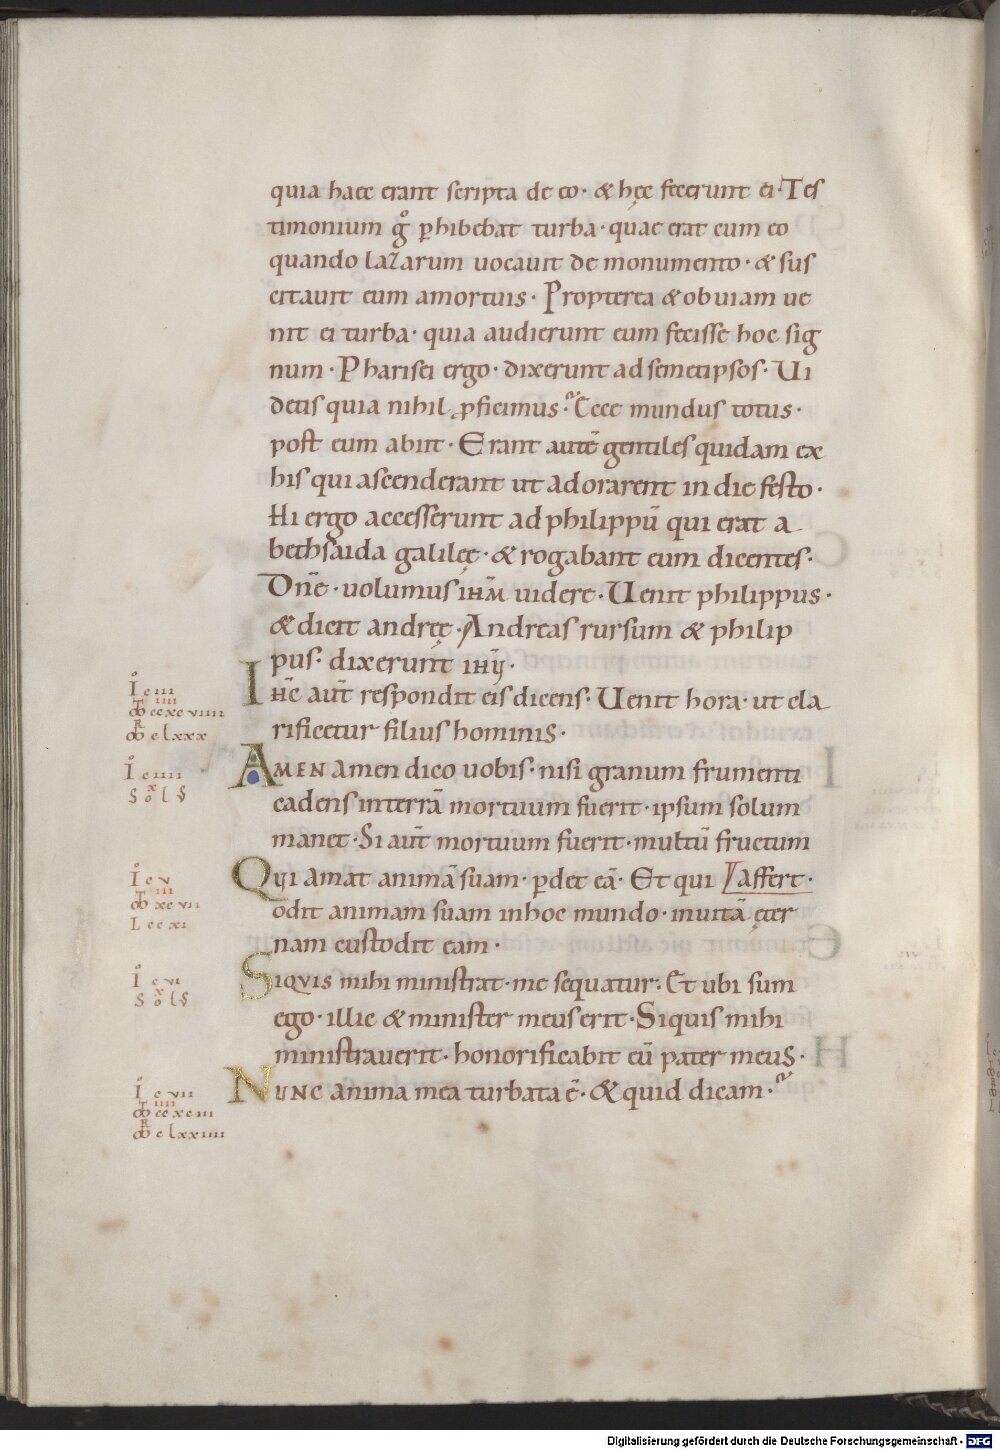 quia haec erant scripta de eo· & hęc fecerunt ei· Tes
timonium gͦ ꝑhibebat turba· quae erat cum eo
quando lazarum uocauit de monumento· & sus
citauit eum amortuis· Propterea & obuiam ue
nit ei turba· quia audierunt eum fecisse hoc sig
num· Pharisei ergo· dixerunt ad semetipsos· Ui
detis quia nihil ꝓficimus· Ecce mundus totus·
post eum abiit· Erant autē gentiles quidam ex
his qui ascenderant ut adorarent in die festo·
Hi ergo accesserunt ad philippū qui erat a
bethsaida galileę· & rogabant eum dicentes·
Dn̄e· uolumus ihm̄ uidere· Uenit philippus·
& dicit andreę· Andreas rursum & philip
pus· dixerunt ihū·
Ihc̄ aut̄ respondit eis dicens· Uenit hora· ut cla
rificetur filius hominis·
Amen amen dico uobis· nisi granum frumenti
cadens interrā mortuum fuerit· ipsum solum
manet· Si aut̄ mortuum fuerit· multū fructum
Qui amat animā suam· ꝑdet eā· Et qui affert·
odit animam suam inhoc mundo· inuitā ęter
nam custodit eam·
Siquis mihi ministrat· me sequatur: Et ubi sum
ego· illic & minister meus erit· Siquis mihi
ministrauerit· honorificabit eū pater meus·
Nunc anima mea turbata ē· & quid dicam·
Io ciii
IIII
M ccxcviiii
MR clxxx
Io ciiii
X
Solꝰ
Io cv
III
MT xcvii
L ccxi
Io cvi
X
Solꝰ
Io cvii
IIII
MT ccxciii
MR clxxiiii
Digitalisierung gefördert durch die Deutsche Forschungsgemeinschaft - DFG